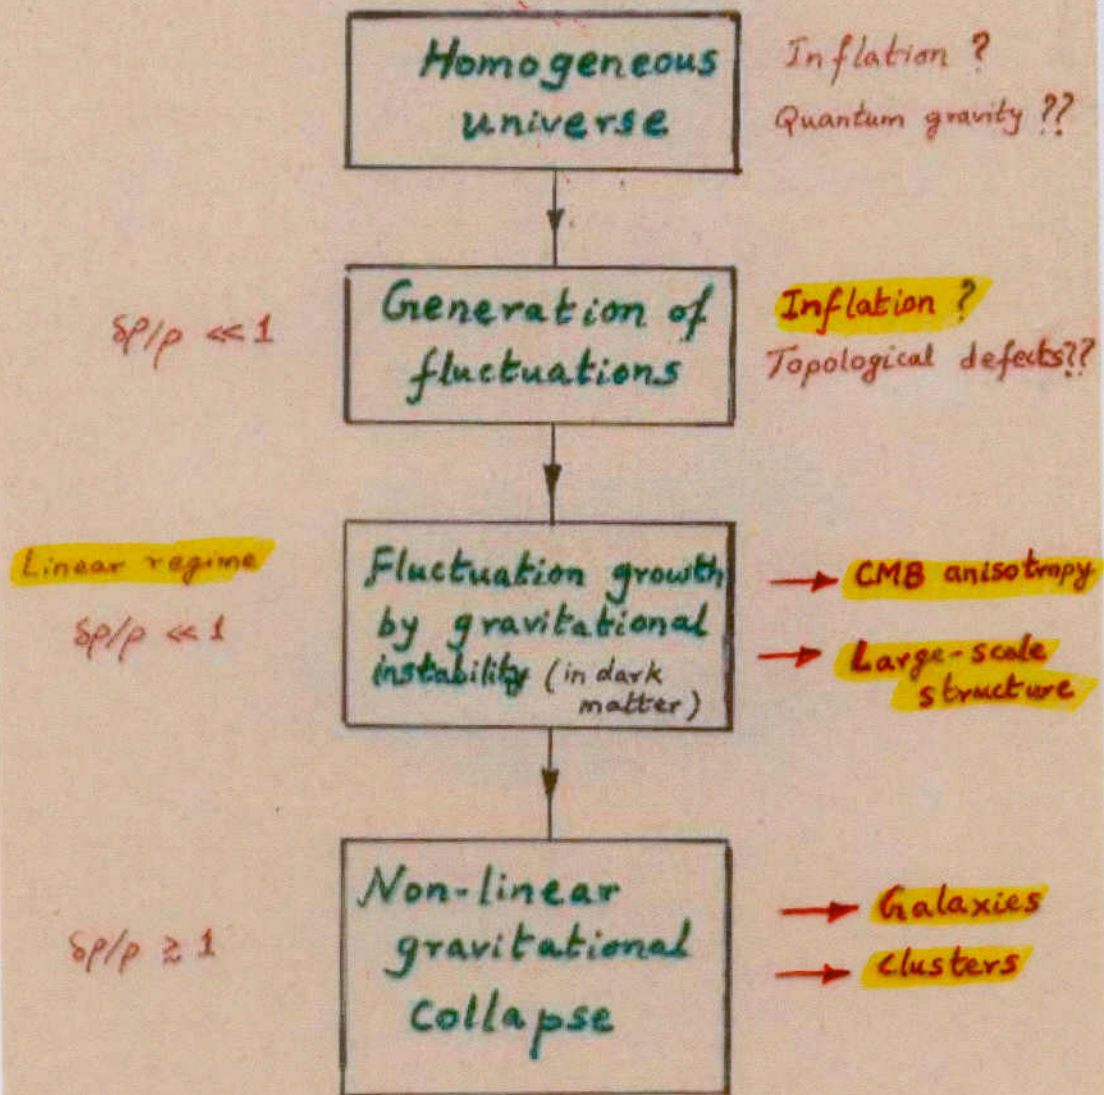 Homogeneous
universe
Inflation ?
Quantum gravity ??
δρ/ρ << 1
Generation of
fluctuations
Inflation ?
Topological defects??
Linear regime
δρ/ρ << 1
Fluctuation growth
by gravitational
instability (in dark
matter)
→ CMB anisotropy
→ Large-scale
structure
δρ/ρ ≳ 1
Non-linear
gravitational
collapse
→ Galaxies
→ Clusters